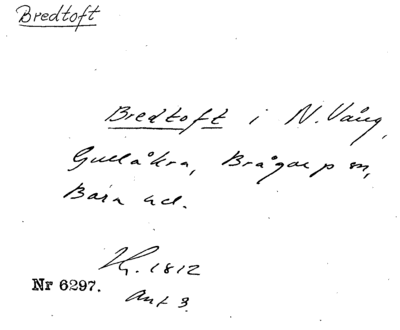 Bredtoft
Bredtoft i N. Vång,
Gullåkra, Brågarp sn,
Bara hd.
1812
Nr 6297.
Akt 3.